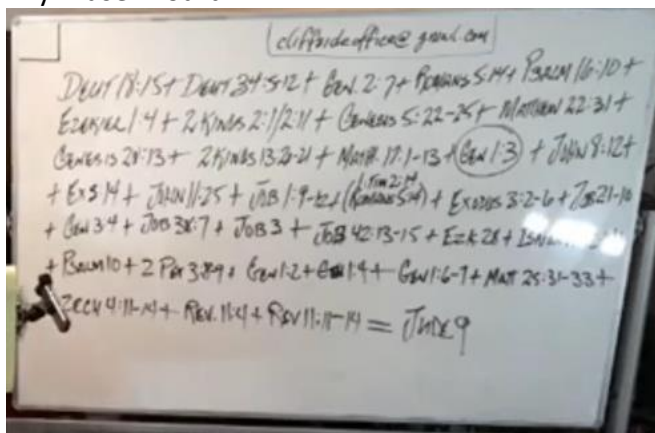 cliffsideoffice@gmail.com
DEUT 18:15 + DEUT 34:5-12 + GEN. 2:7 + ROMANS 5:14 + PSALM 16:10 +
EZEKIEL 1:4 + 2 KINGS 2:1/2:11 + GENESIS 5:22-25 + MATTHEW 22:31 +
GENESIS 28:13 + 2 KINGS 13:20-21 + MATT. 17:1-13 + GEN 1:3 + JOHN 8:12 +
1 TIM 2:14
+ EX 3:14 + JOHN 11:25 + JOB 1:9-12 + (ROMANS 5:14) + EXODUS 3:2-6 + JOB 2:1-10
+ GEN 3:4 + JOB 38:7 + JOB 3 + JOB 42:13-15 + EZK 28 +
+ PSALM 10 + 2 PET 3:8-9 + GEN 1:2 + GEN 1:4 + GEN 1:6-7 + MAT 25:31-33 +
ZECH 4:11-14 + REV. 11:4 + REV 11:11-14 = JUDE 9